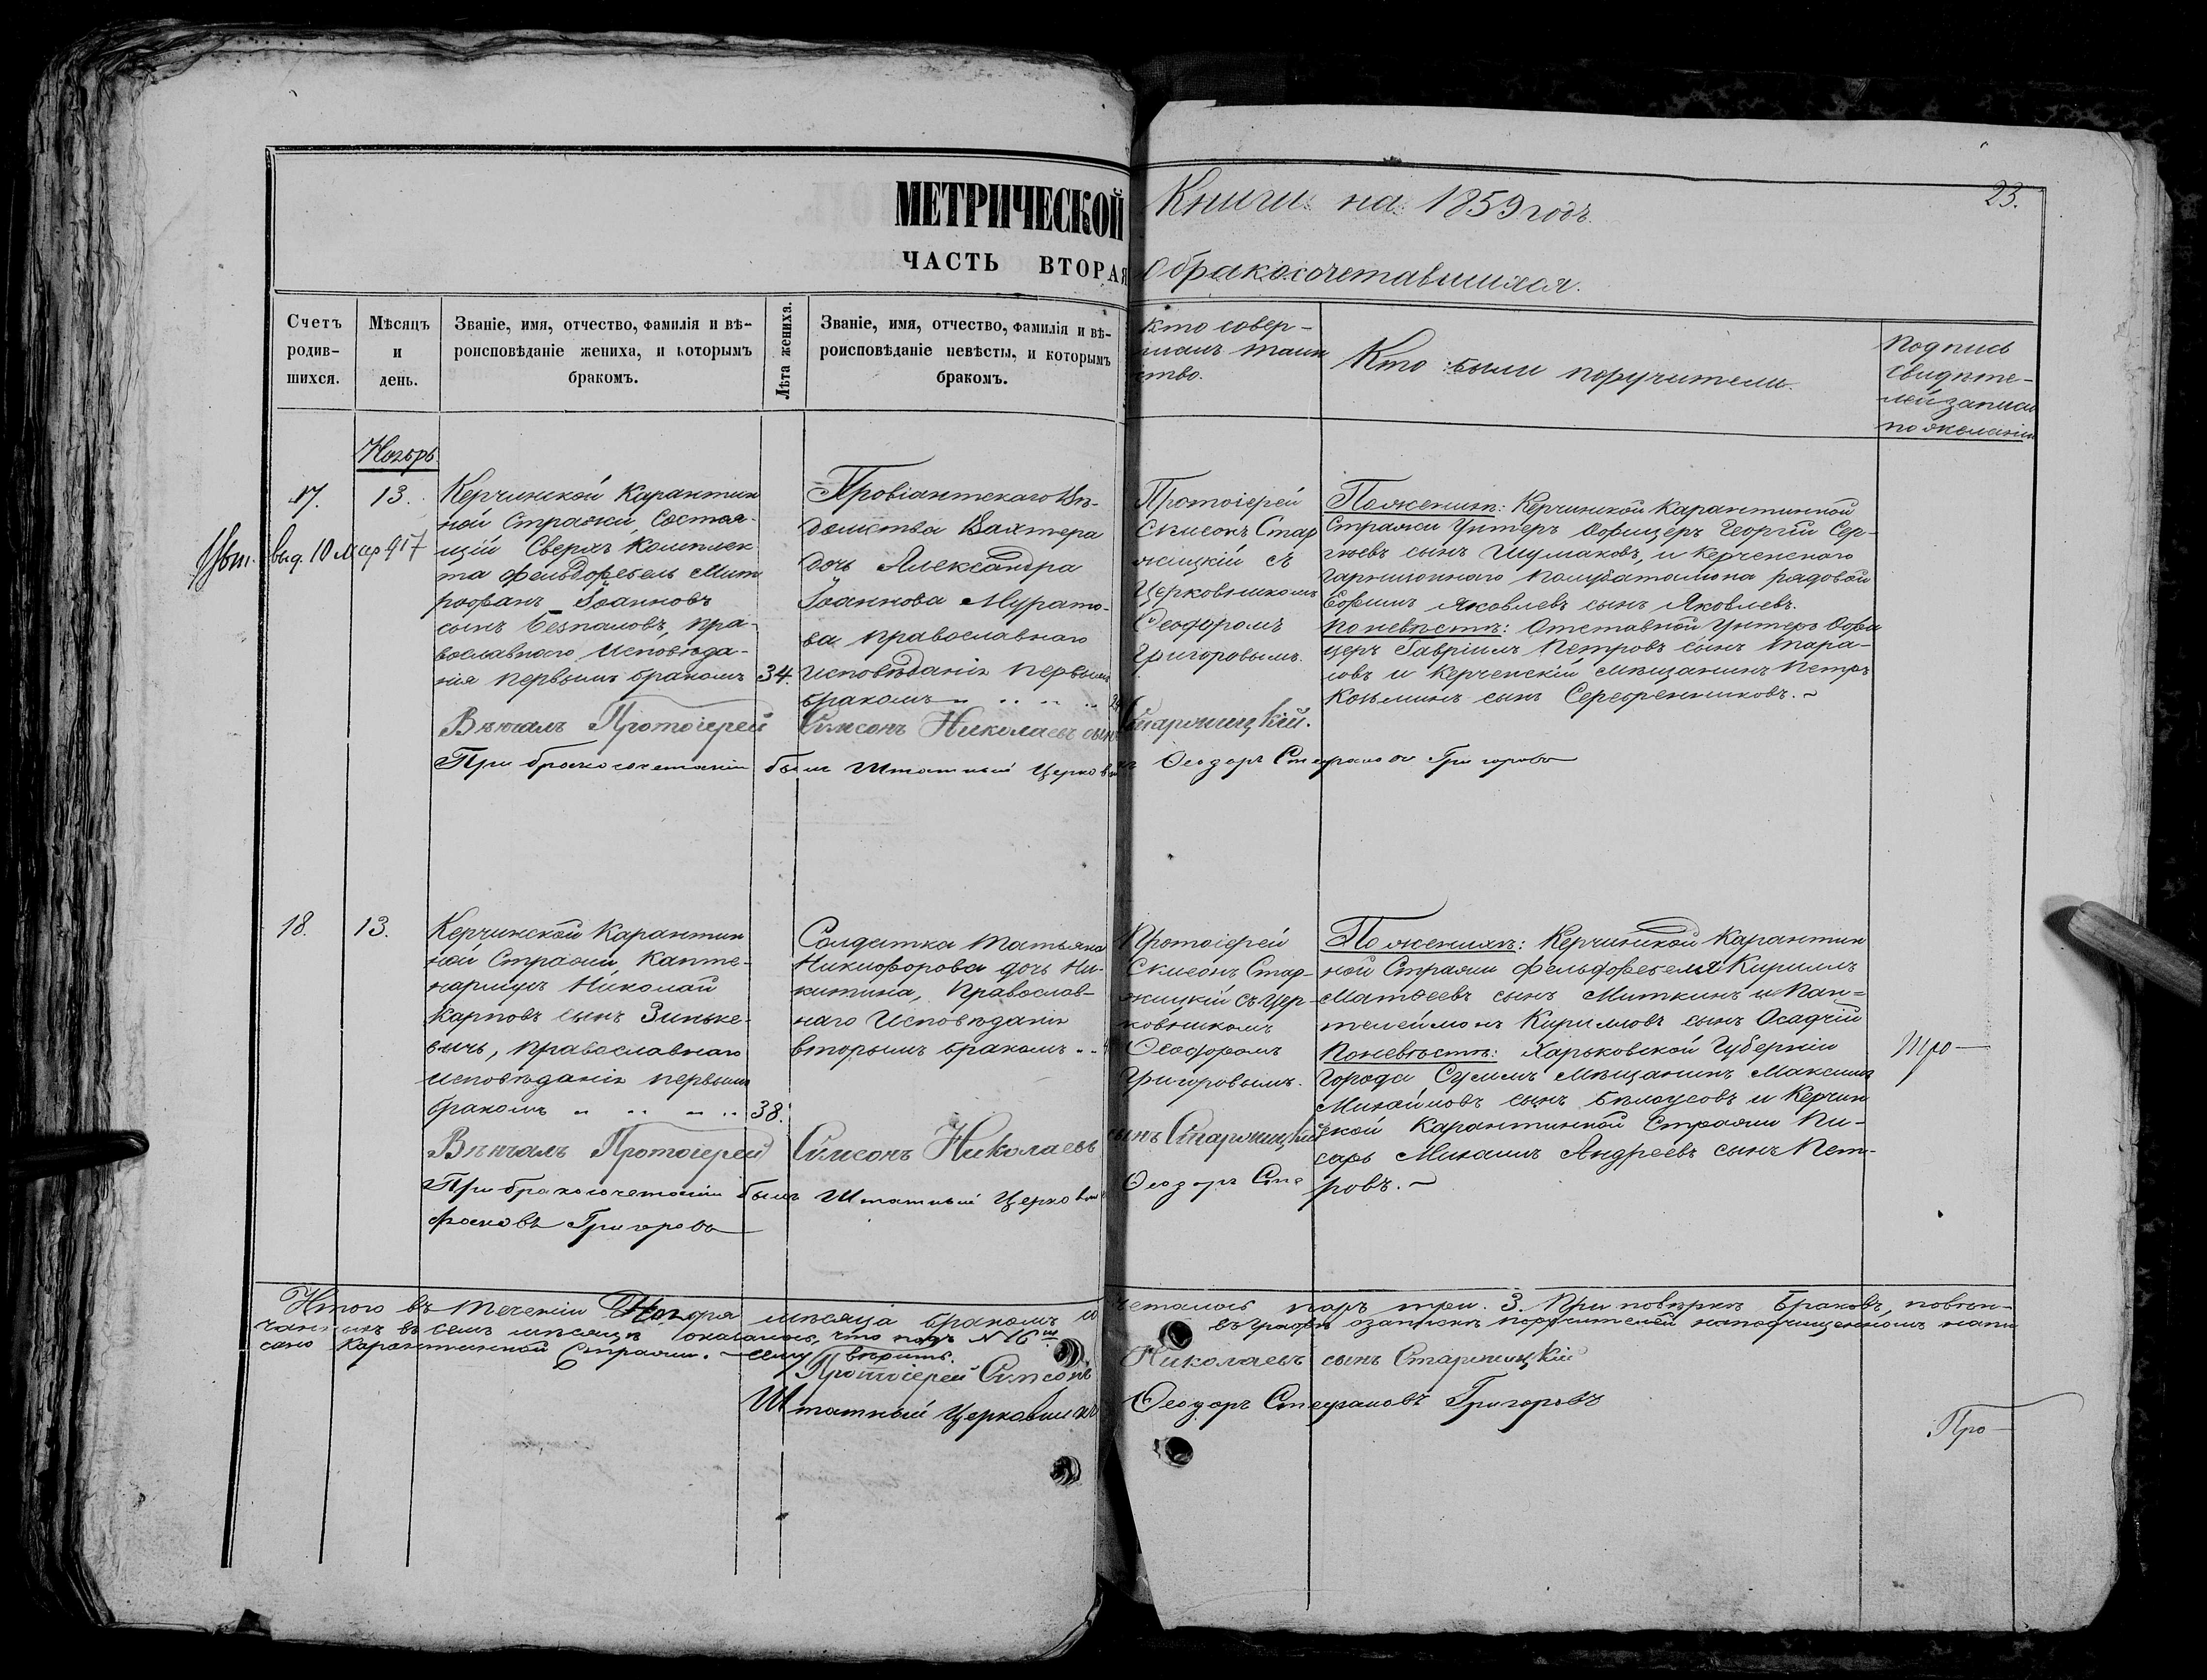 МЕТРИЧЕСКОЙ Книги на 1859 годъ.
23.
ЧАСТЬ ВТОРАЯ О бракосочетавшихся.
Счетъ родив-
шихся.
Мѣсяцъ
и
день.
Званіе, имя, отчество, фамилія и вѣ-
роисповѣданіе жениха, и которымъ
бракомъ.
Лѣта жениха.
Званіе, имя, отчество, фамилія и вѣ-
роисповѣданіе невѣсты, и которымъ
бракомъ.
Кто совер-
шалъ таин
ство.
Кто были поручители.
Подпись
свидѣте-
лей записи
по желанію
Ноябрь
17.
13.
выд. 10 мар 917
Керчинской Карантин
ной Стражи, Состоя-
щій Сверхъ Комплек
та фельдфебель Мит
рофанъ Іоанновъ
сынъ Безпаловъ, пра-
вославнаго Исповѣда-
нія первымъ бракомъ
34.
Провіантскаго Вѣ-
домства Вахтера
дочь Александра
Іоаннова Мурато-
ва православнаго
Исповѣданія первымъ
бракомъ
Протоіерей
Сѵмеонъ Стар
жицкій съ
Церковникомъ
Ѳеодоромъ
Григоровымъ.
По женихѣ: Керчинской Карантинной
Стражи Унтеръ Офицеръ Георгій Сер-
гѣевъ сынъ Шумаковъ, и Керченскаго
гарнизоннаго полубаталіона рядовой
Ефимъ Яковлевъ сынъ Яковлевъ.
По невѣстѣ: Отставной Унтеръ Офи
церъ Гавріилъ Петровъ сынъ Тара-
совъ и Керченскій мѣщанинъ Петръ
Козьминъ сынъ Серебренниковъ.
Вѣнчалъ Протоіерей Сѵмеонъ Николаевъ сынъ Старжицкій.
При бракосочетаніи былъ Штатный Церковникъ Ѳеодоръ Стефановъ Григоровъ
18.
13.
Керчинской Карантин
ной Стражи, Капте-
нармусъ Николай
Карповъ сынъ Зиньке-
вичь, православнаго
исповѣданія первымъ
бракомъ
38.
Солдатка Татьяна
Никифорова дочь Ни-
китина, Православ-
наго Исповѣданія
вторымъ бракомъ
Протоіерей
Сѵмеонъ Стар-
жицкій съ Цер-
ковникомъ
Ѳеодоромъ
Григоровымъ.
По женихѣ: Керчинской Карантин
ной Стражи фельдфебеля Кириллъ
Матѳеевъ сынъ Миткинъ и Пан-
телеймонъ Кирилловъ сынъ Осадчій
По невѣстѣ: Харьковской Губерніи
города Сумъ Мѣщанинъ Максимъ
Михайловъ сынъ Бѣлоусовъ и Керчин
ской Карантинной Стражи Пи-
сарь Михаилъ Андреевъ сынъ Пет-
ровъ.
Про
Вѣнчалъ Протоіерей Сѵмеонъ Николаевъ сынъ Старжицкій
При бракосочетаніи былъ Штатный Церковникъ Ѳеодоръ Сте
фановъ Григоровъ
Итого въ теченіи Ноября мѣсяца бракомъ со четалось паръ три. 3. При повѣркѣ Браковъ, повѣн-
чанныхъ въ семъ мѣсяцѣ оказалось, что подъ № 16 въ графѣ о записи поручителей по подчищенному напи
сано Карантинной Стражи. Сему вѣрить.
Протоіерей Сѵмеонъ Николаевъ сынъ Старжицкій
Штатный Церковникъ Ѳеодоръ Стефановъ Григоровъ
Про